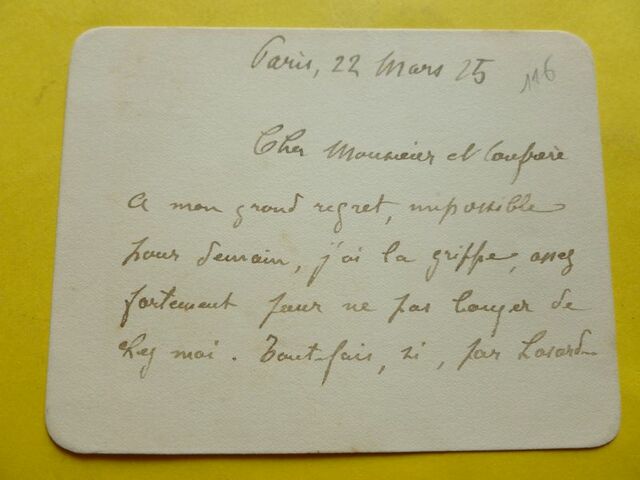 Paris, 22 Mars 25
116
Cher Monsieur et Confrère
A mon grand regret, impossible
pour demain, j'ai la grippe, assez
fortement pour ne pas bouger de
chez moi. Toutefois, si, par hasard